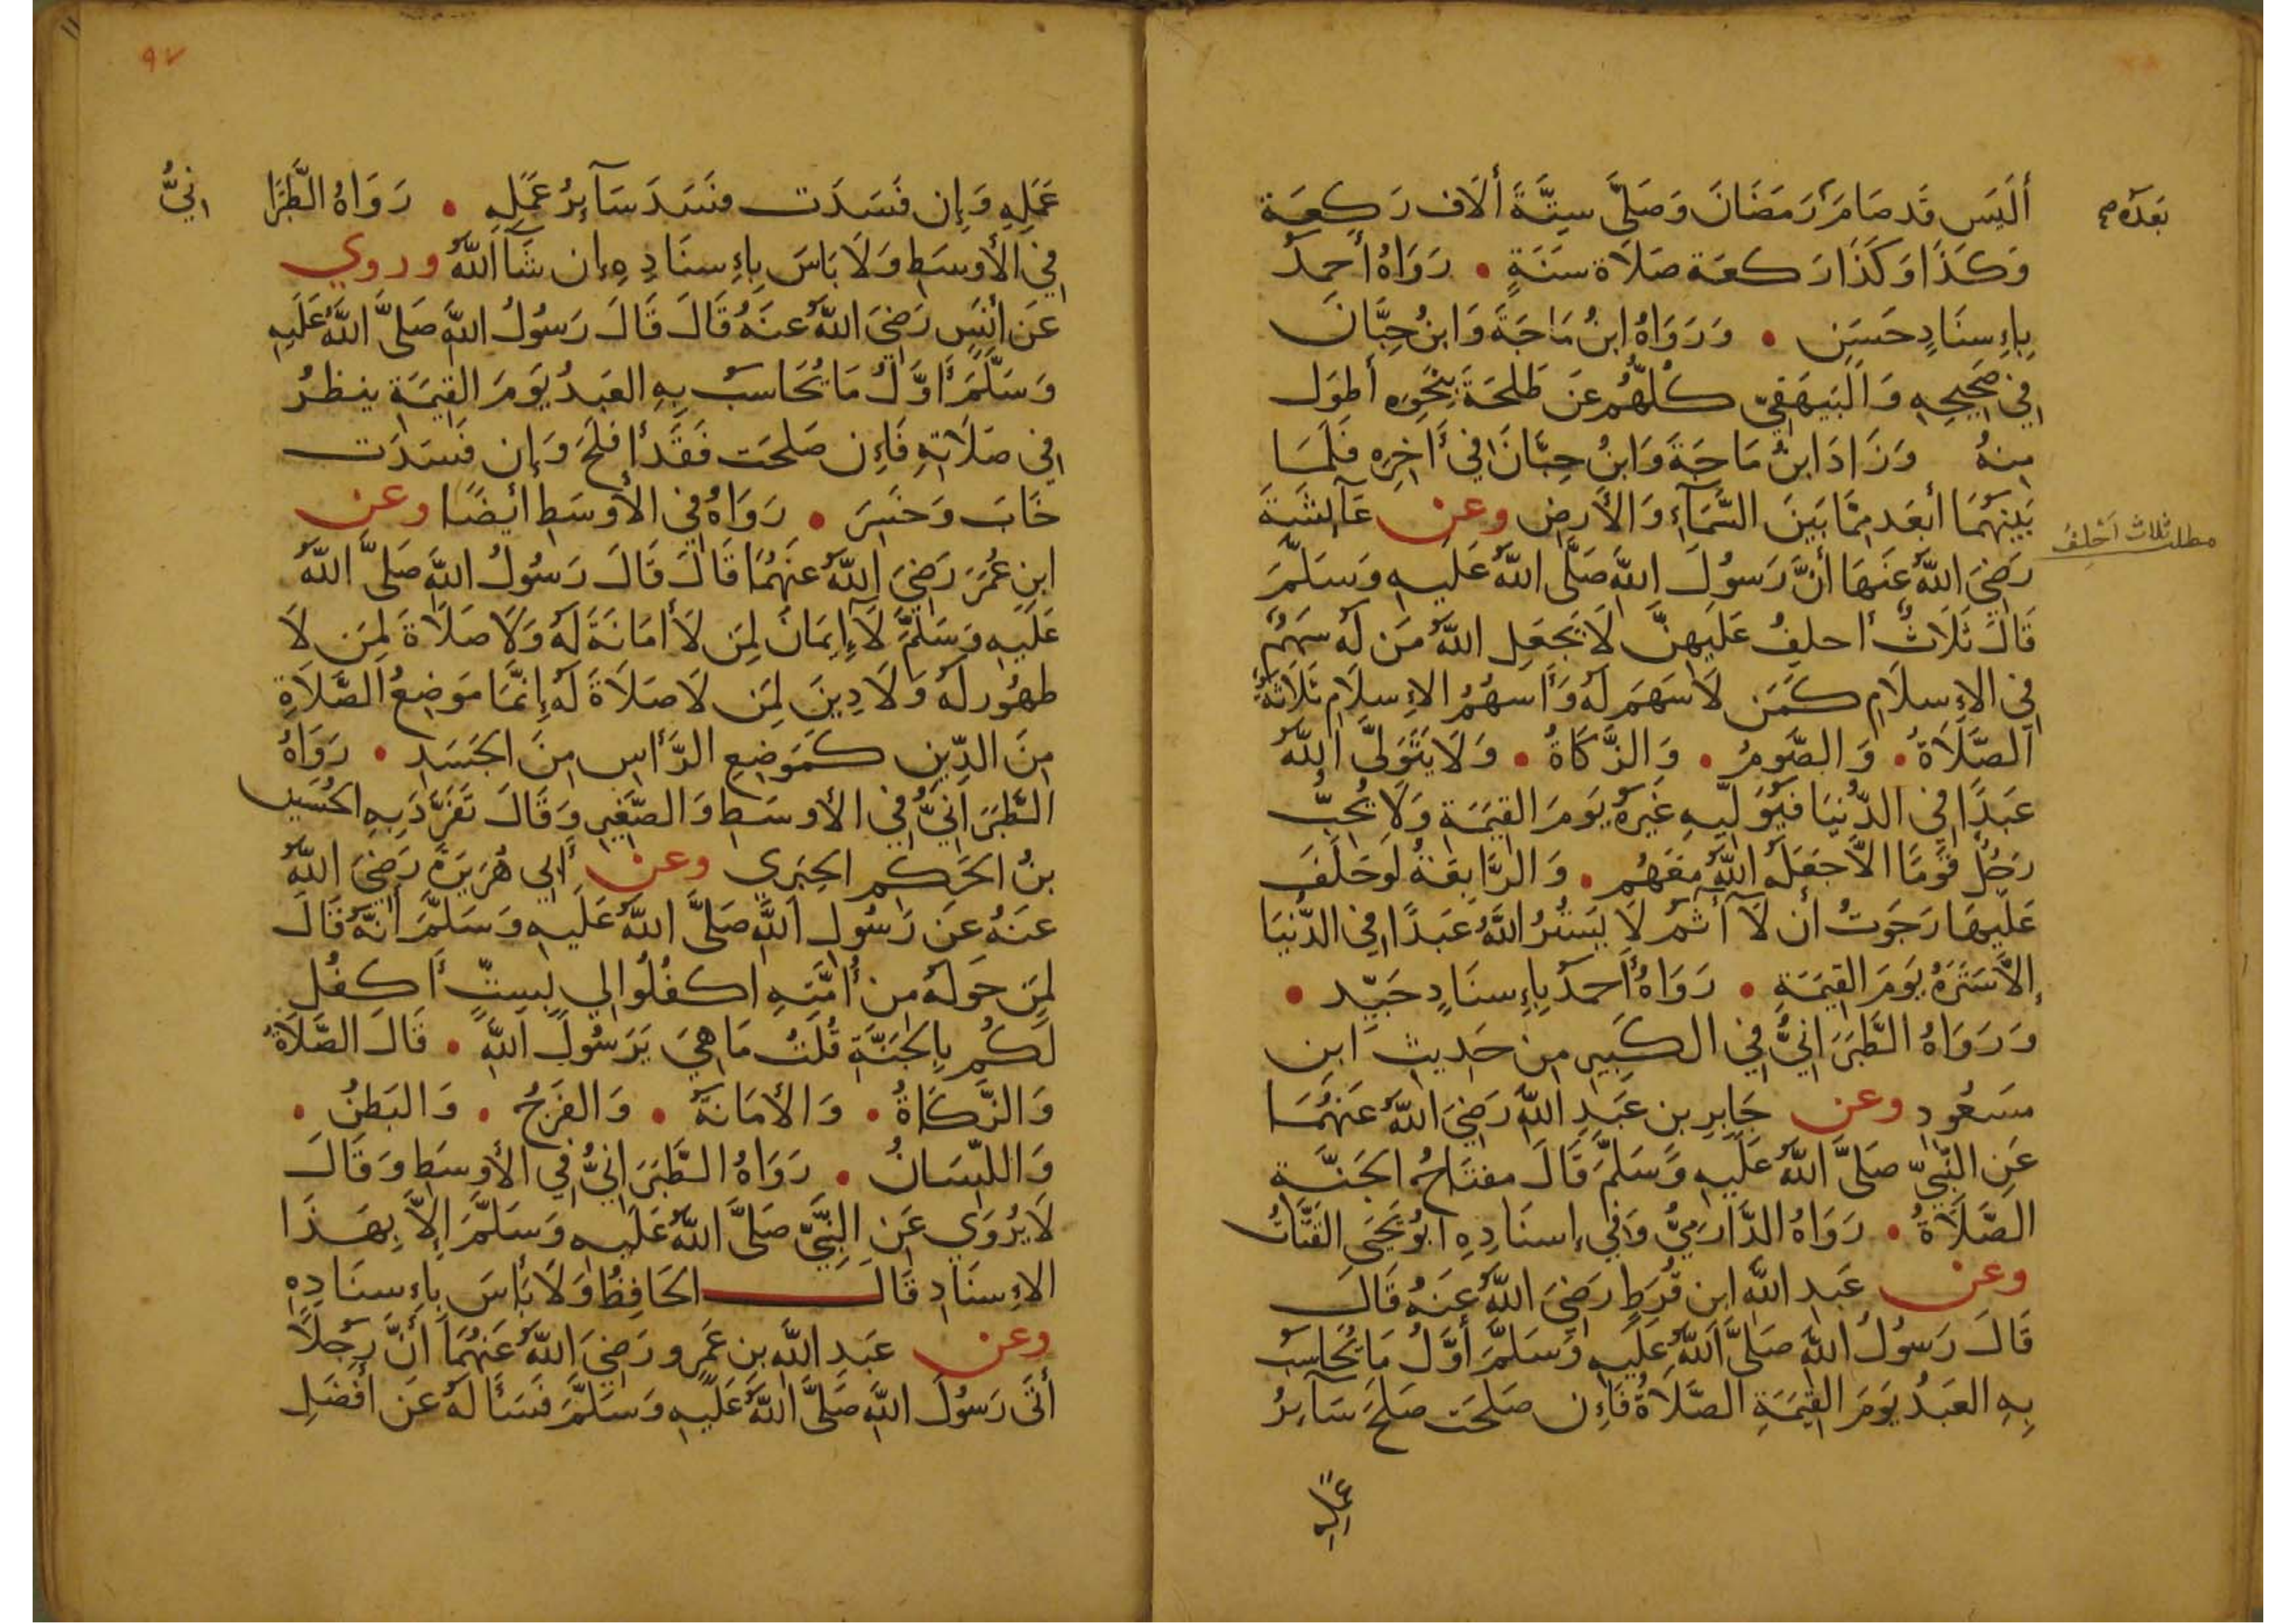 أَلَيْسَ قَد صَامَ رَمَضَانَ وَصَلَّى سِتَّةَ أَلَاف رَكعَة
بَعدَهُ صح
وَكَذَا وَكَذَا رَكعَة صَلَاة سَنَةٍ • رَوَاهُ أحمدُ
بِإِسنَادٍ حَسَنٍ • وَرَوَاهُ ابنُ مَاجَةَ وَابنُ حِبَّانَ
فِي صَحِيحِهِ وَالبَيهَقِيّ كُلُّهُم عَن طَلحَةَ بِنَحوِهِ أَطوَل
مِنهُ وَزَادَ ابنُ مَاجَةَ وَابنُ حِبَّانَ فِي آخِرِهِ فَلَمَا
بَينَهُمَا أَبعَد مِمَّا بَينَ السَّمَآءِ وَالأَرضِ وعن عَآئِشَةَ
مطلب ثلاث أحلف
رَضِيَ اللَّهُ عَنهَا أَنَّ رَسُولَ اللَّهِ صَلَّى اللَّهُ عَلَيهِ وَسَلَّمَ
قَالَ ثَلَاثٌ أَحلِفُ عَلَيهِنَّ لَا يَجعَلِ اللَّهُ مَن لَه سَهمٌ
فِي الإِسلَامِ كَمَن لَا سَهمَ لَهُ وَأَسهُمُ الإِسلَامِ ثَلَاثَةٌ
الصَّلَاةُ • وَالصَّومُ • وَالزَّكَاةُ • وَلَا يَتَوَلَّى اللَّهُ
عَبدًا فِي الدُّنيَا فَيُوَلِّيهِ غَيرَهُ يَومَ القِيَمَةِ وَلَا يُحِبُّ
رَجُلٌ قَومًا الَّا جَعَلَهُ اللَّهُ مَعَهُم • وَالرَّابِعَةُ لَو حَلَفتُ
عَلَيهَا رَجَوتُ أَن لَا آثَم لَا يَستُرُ اللَّهُ عَبدًا فِي الدُّنيَا
إِلَّا سَتَرَهُ يَومَ القِيَمَةِ • رَوَاهُ أَحمَدُ بِإِسنَادٍ جَيِّد •
وَرَوَاهُ الطَّبَرَانِيُّ فِي الكَبِيرِ مِن حَدِيثِ ابنِ
مسَعُودٍ وعن جَابِرِ بن عَبدِ اللَّهِ رَضِيَ اللَّهُ عَنهُمَا
عَنِ النَّبِيِّ صَلَّى اللَّهُ عَلَيهِ وَسَلَّمَ قَالَ مفتَاحُ الجَنَّةِ
الصَّلَاةُ • رَوَاهُ الدَّارَمِيُّ وَفِي إِسنَادِهِ ابُو يَحيَى القَتَّاتُ
وعن عَبد اللَّهِ ابن قُرطٍ رَضِيَ اللَّهُ عَنهُ قَالَ
قَالَ رَسُولُ اللَّهِ صَلَّى اللَّهُ عَلَيهِ وَسَلَّمَ أَوَّلُ مَا يُحَاسَبُ
بِهِ العَبدُ يَومَ القِيَمَةِ الصَّلَاةُ فَإِن صَلَحَت صَلَحَ سَآيِرُ
عمله
٩٧
عَمَلِهِ وَإِن فَسَدَت فسَدَ سَآيِرُ عَمَلِهِ • رَوَاهُ الطَّبَرَانِيُّ
فِي الأَوسَطِ وَلَا بَاسَ بِإِسنَادِهِ إِن شَآ اللَّهُ وروي
عَن أَنَسٍ رَضِيَ اللَّهُ عنهُ قَالَ قَالَ رَسُولُ اللَّهِ صَلَّى اللَّهُ عَلَيهِ
وَسَلَّمَ أَوَّلُ مَا يُحَاسَبُ بِهِ العَبدُ يَومَ القِيَمَةِ ينظرُ
فِي صَلَاتِهِ فَإِن صَلحَت فَقَد أفلَحَ وَإِن فَسَدَت
خَابَ وَخَسِرَ • رَوَاهُ فِي الأَوسَطِ أَيضًا وعن
ابنِ عُمَرَ رَضِيَ اللَّهُ عَنهُمَا قَالَ قَالَ رَسُولُ اللَّهِ صَلَّى اللَّهُ
عَلَيهِ وَسَلَّمَ لَا إِيمَانَ لِمَن لَا أَمَانَةَ لَهُ وَلَا صَلَاةَ لِمَن لَا
طهُور لَهُ وَلَا دِينَ لِمَن لَا صَلَاةَ لَهُ إِنَّمَا مَوضِعُ الصَّلَاةِ
مِنَ الدِّينِ كَمَوضِعِ الرَّأسِ مِنَ الجَسَدِ • رَوَاهُ
الطَّبَرَانِيُّ فِي الأَوسَطِ وَالصَّغِيرِ وَقَالَ تَفَرَّدَ بِهِ الحُسَين
بنُ الحَكَمِ الحِبَرِي وعن أَبِي هُرَيرَةَ رَضِيَ اللَّهُ
عَنهُ عَن رَسُولِ اللَّهِ صَلَّى اللَّهُ عَلَيهِ وَسَلَّمَ أَنَّهُ قَالَ
لِمَن حَولَهُ مِن أُمَّتِهِ اكفُلُوا لِي بِسِتٍّ أَكفُل
لَكُم بِالجَنَّةِ قُلتُ مَا هِيَ يَرَسُولَ اللَّهِ • قَالَ الصَّلَاةُ
وَالزَّكَاةُ • وَالأَمَانَةُ • وَالفَرجُ • وَالبَطنُ •
وَاللِّسَانُ • رَوَاهُ الطَّبَرَانِيُّ فِي الأَوسَطِ وَقَالَ
لَا يُروَي عَنِ النَّبِيِّ صَلَّى اللَّهُ عَلَيهِ وَسَلَّمَ إِلَّا بِهَذَا
الإِسنَادِ قَالَ الحَافِظُ وَلَا بَأسَ بِإِسنَادِهِ
وعن عَبدِ اللَّهِ بنِ عَمرٍو رَضِيَ اللَّهُ عَنهُمَا أَنَّ رَجُلًا
أَتَى رَسُولَ اللَّهِ صَلَّى اللَّهُ عَلَيهِ وَسَلَّمَ فَسَأَلَهُ عَن أَفضَلِ